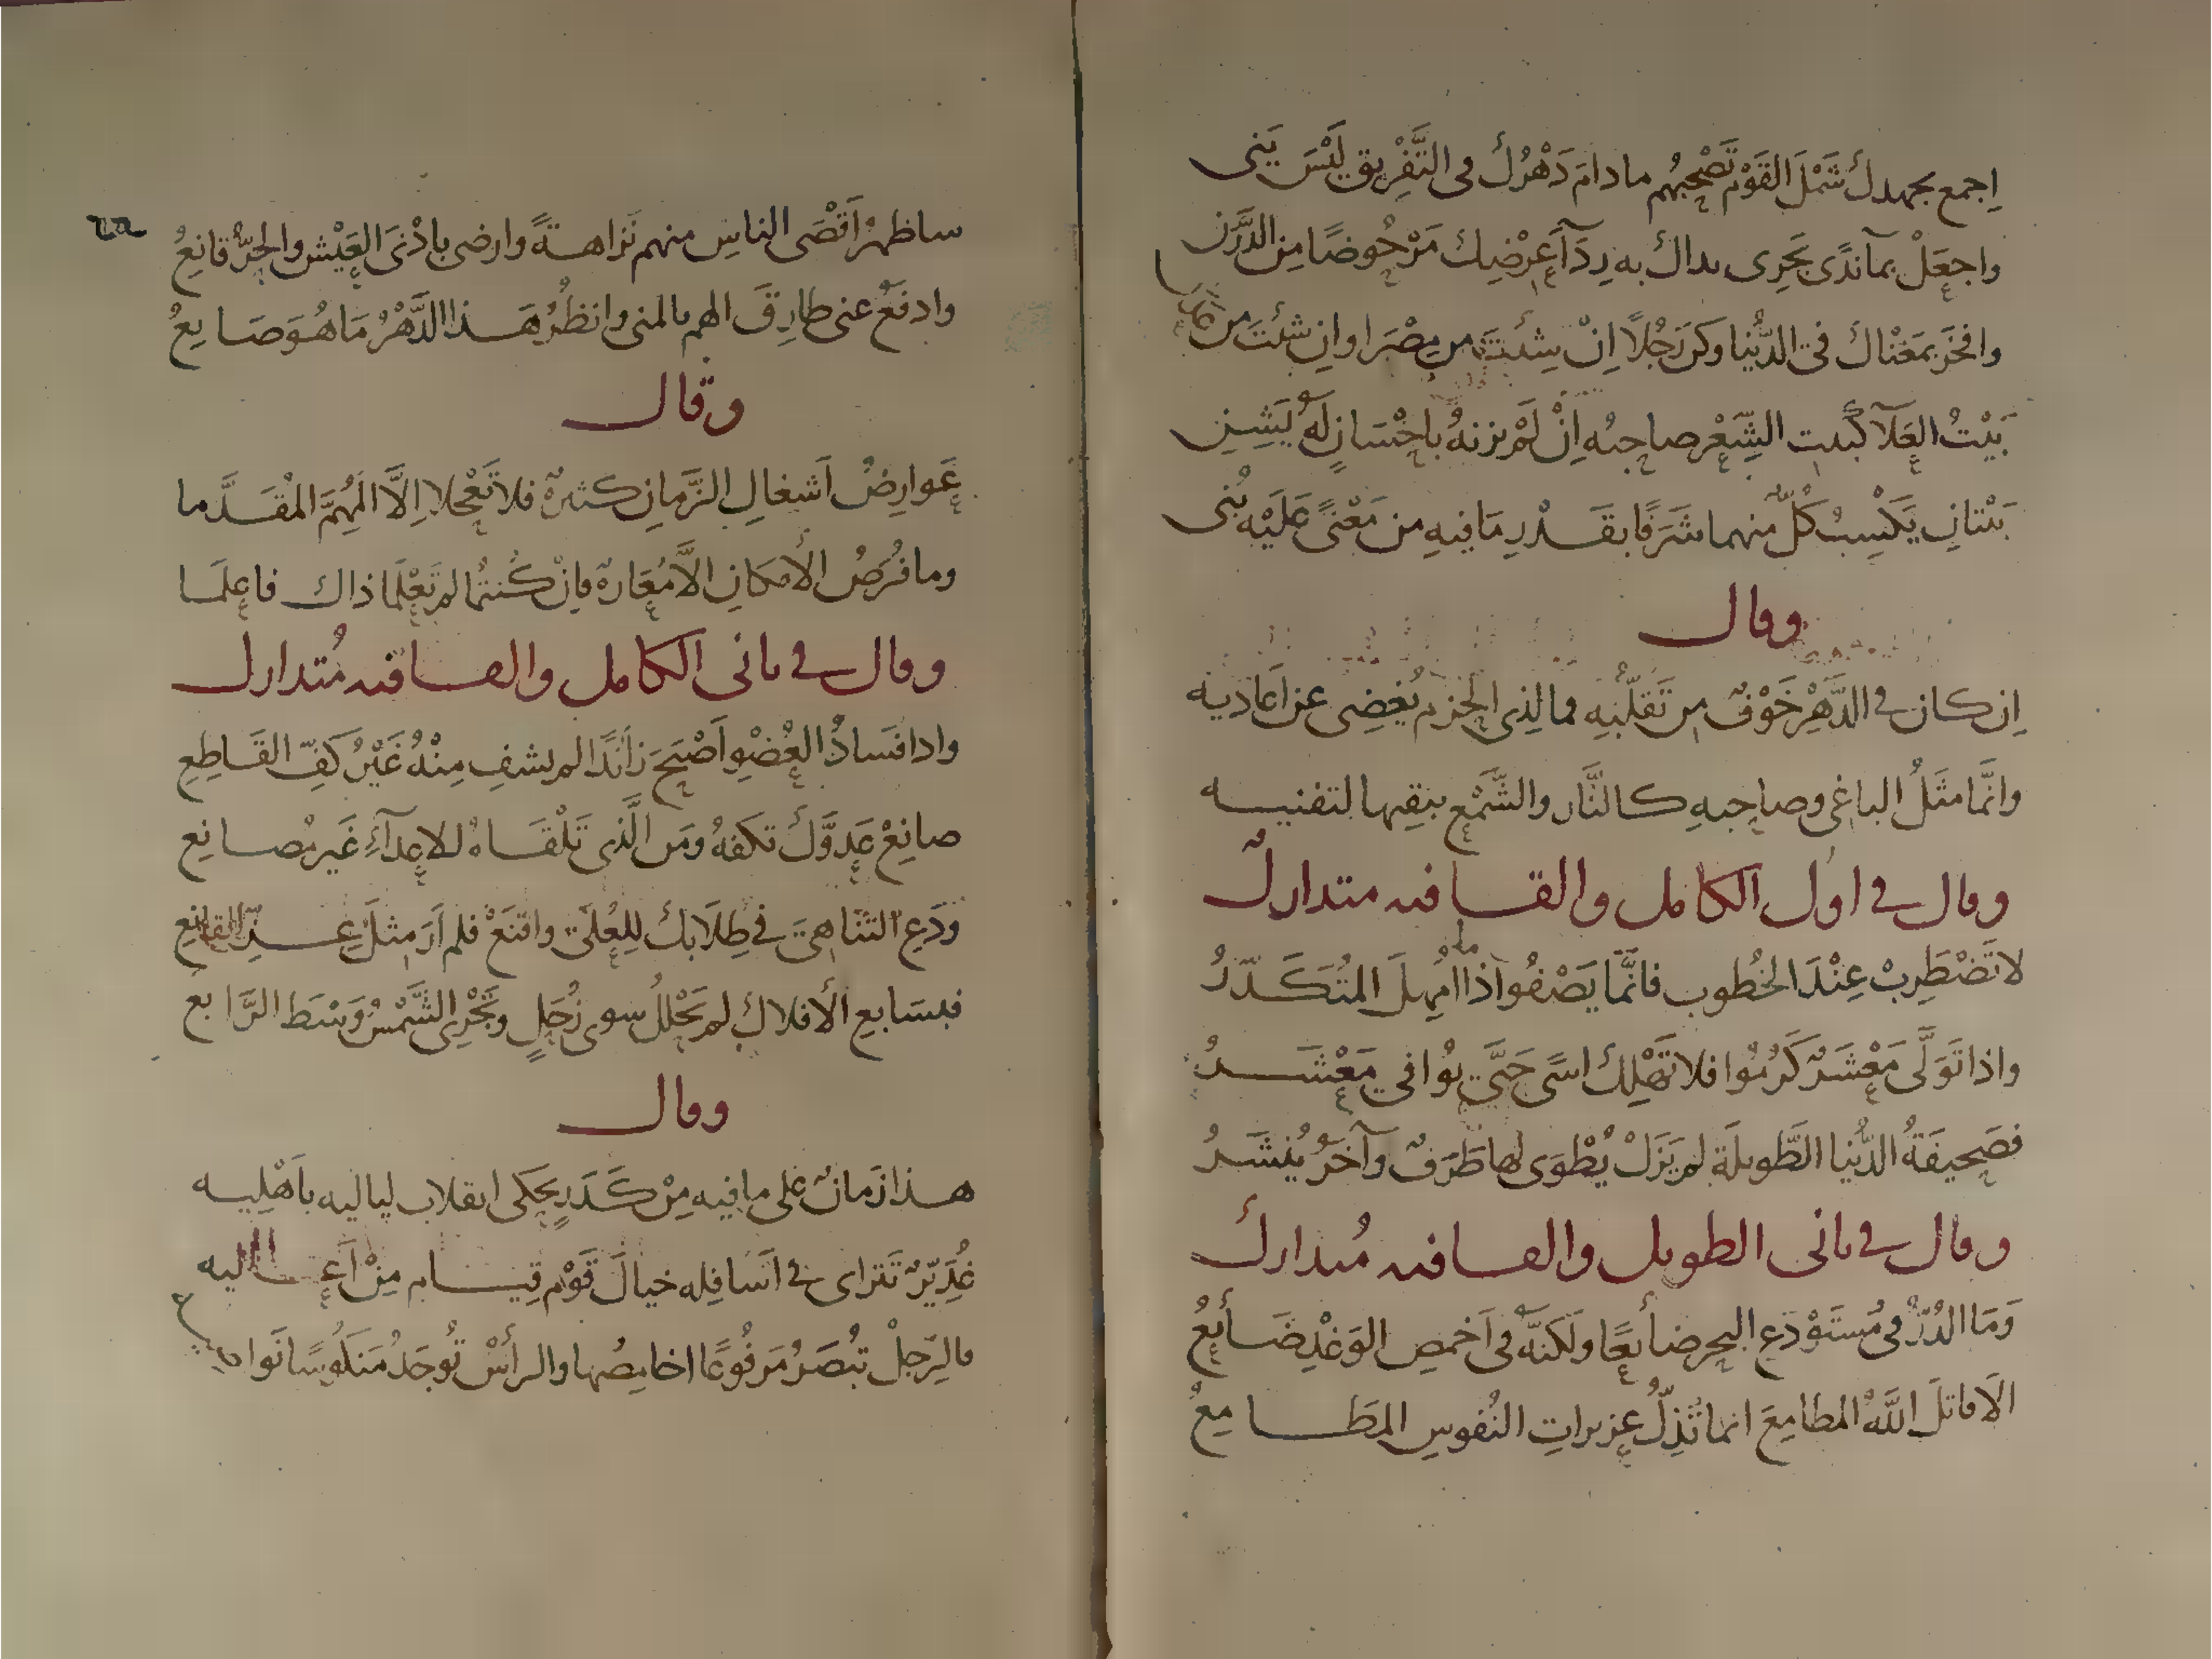 اِجمع بجهدكَ شَمْلَ القَوْمِ تَصْحَبُهم مادامَ دَهْرُكَ فى التَّفْرِيقِ لَيْسَ يَنى
واجعَلْ بمآندًى تَجرِى يداك به رِدَآءَ عِرْضِكَ مَرْحُوضًا مِنَ الدَّرَنِ
وافخَر بمَغْناكَ فى الدُّنيا وكن رَجُلاً اِنْ شِئتَ من مِصْرَ اوان شئتَ من
بَيْتُ العَلآ كبَيت الشِّعْر صاحِبُه اِنْ لَمْ يزنهُ بِاِحْسَانٍ لَهُ يَشِنِ
بَيْتانِ يَكْسِبُ كُلٌّ منهما شَرَفًا بقَدْرِ مَا فِيهِ من مَعْنًى عَلَيْه بُنى
وقال
اِن كان فى الدَّهْرِ خَوْفٌ مِن تَقَلُّبِهِ فما لِذِى الحَزم يُغضِى عن اَعاديه
وانَّما مثَلُ الباغى وصاحِبِهِ كالنَّار والشَّمْعِ يبقِيها لتفنيه
وقال فى اول الكامل والقافيه متداركٌ
لاتَضْطَرِبْ عِنْدَ الخُطوب فانَّمَا يَصْفُوا اذا ما اُمهِلَ المُتَكَدّرُ
واذا تَوَلَّى مَعْشَرٌ كَرُمُوا فلا تَهْلِكْ اسًى حَتَّى يُوافى مَعْشَرُ
فصَحيفَةُ الدُّنيا الطَّويلَة لم يَزَلْ يُطْوَى لها طَرَفٌ وآخَرُ يُنشَرُ
وقال فى ثانى الطويل والقافيه مُتداركٌ
وَمَا الدُرُّ فى مُسْتَوْدَعِ البحر ضائعًا ولكنّه فى اَخمصِ الوَغْدِ ضَائعُ
الَا قاتلَ اللهُ المطامِعَ انما تُذِلُّ عزيزاتِ النُفوسِ المَطَامِعُ
ساظهرُ اَقْصَى الناسِ منهم نَزاهةً وارضى باَدْنَى العَيْش والحُرُّ قانِعُ
وادفَعُ عنى طارِقَ الهم بالمنى وانظُرُ هَذا الدَّهْرُ مَا هُوَ صَانِعُ
وقال
عَوارِضُ اَشغالِ الزَّمانِ كثيرةٌ فلا تَعْجلا اِلَّا المُهِمَّ المُقَدَّما
وما فُرَصُ الأمكانِ الاَّ مُعَارةٌ فاِنْ كُنتُما لم تَعْلَما ذاك فاعلَما
وقال فى ثانى الكامل والقافيه مُتدارك
واذا فَسادُ العُضْوِ اَصْبَحَ زَآئدًا لم يشفِ مِنْهُ غَيْرُ كَفِّ القَاطِعِ
صانِعْ عَدوَّكَ تكفهُ ومَن الَّذى تَلْقَاهُ للاعدآءِ غَير مُصانِع
وَدَعِ التَنَاهِىَ فى طِلَابكَ لِلعُلَى واقنَعْ فلم اَرَ مثلَ عِزِّ القانِعِ
فبسَابعِ الأفلاكِ لم يَحْلُلْ سوى زُحَلٍ وتَجْرِى الشَّمْسُ وَسْطَ الرَّابِع
وقال
هذا زَمانٌ على ما فيه مِنْ كَدَرٍ يحكى انقلاب لياليه باَهْلِيه
غُدِيّرٌ تتراى فى اَسافِلِه خيالَ قَوْم قِيَام مِنْ اَعاليه
فالرِّجلُ تُبْصَرُ مَرفُوعًا اخامِصُها والرأسُ تُوجَدُ مَنكُوسًا